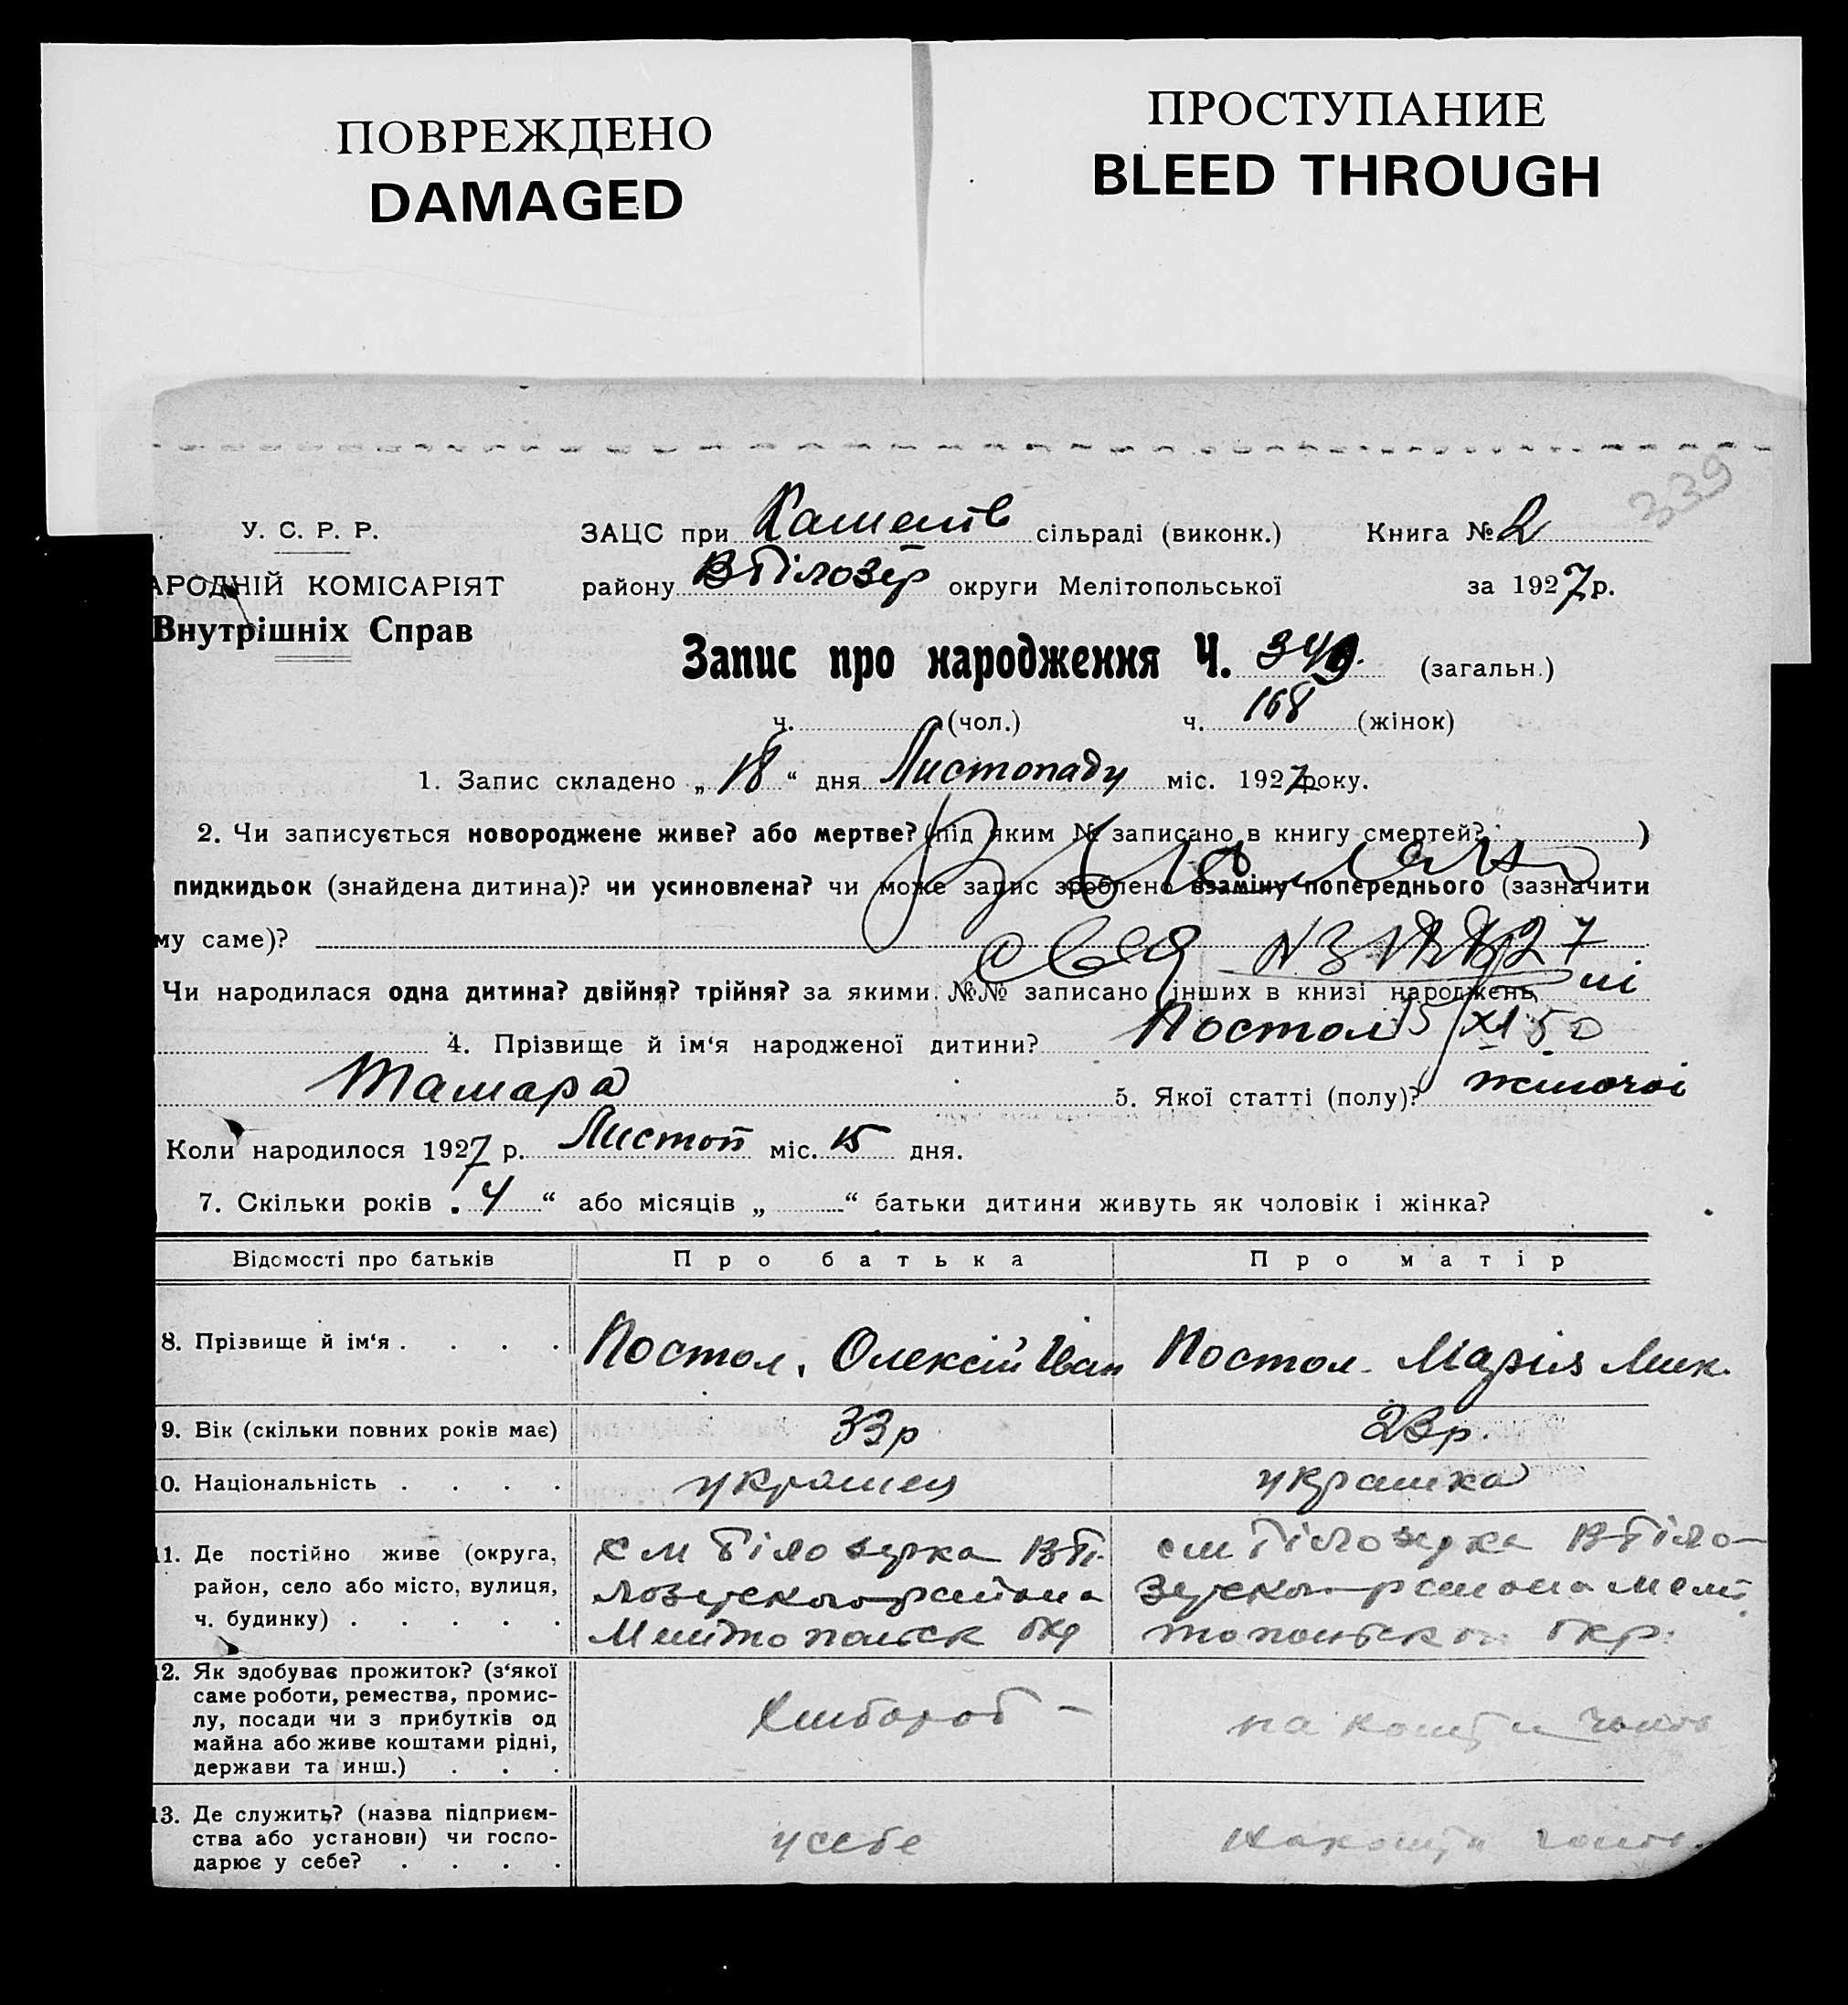 ПОВРЕЖДЕНО
DAMAGED
ПРОСТУПАНИЕ
BLEED THROUGH
339
У. С. Р. Р.
ЗАЦС при сільраді (виконк.) Книга № 2
АРОДНІЙ КОМІСАРІЯТ
району В Білозер округи Мелітопольської за 1927 р.
Внутрішніх Справ
Запис про народження Ч. 349. (загальн.)
ч. (чол.) ч. 168 (жінок)
1. Запис складено „ 18 “ дня Листопаду міс. 1927 року.
2. Чи записується новороджене живе? або мертве? (під яким № записано в книгу смертей? )
пидкидьок (знайдена дитина)? чи усиновлена? чи може запис зроблено взаміну попереднього (зазначити
му саме)?
Чи народилася одна дитина? двійня? трійня? за якими №№ записано інших в книзі народжень
4. Прізвище й ім‘я народженої дитини? Постол 15/XI 50
Тамара 5. Якої статті (полу)? жіночої
Коли народилося 1927 р. Листоп міс. 15 дня.
7. Скільки років „ 4 “ або місяців „ “ батьки дитини живуть як чоловік і жінка?
Відомості про батьків Про батька Про матір
8. Прізвище й ім‘я . . . . Постол. Олексій Іван Постол. Марія Мик.
9. Вік (скільки повних років має) 33р 23р.
0. Національність . . . . украинец украинка
11. Де постійно живе (округа,
район, село або місто, вулиця,
ч. будинку) . . . . .
12. Як здобуває прожиток? (з‘якої
саме роботи, ремества, промис-
лу, посади чи з прибутків од
майна або живе коштами рідні,
держави та инш.) . . .
Хлібороб -
13. Де служить? (назва підприєм-
ства або установи) чи госпо-
дарює у себе? . . . .
у себе